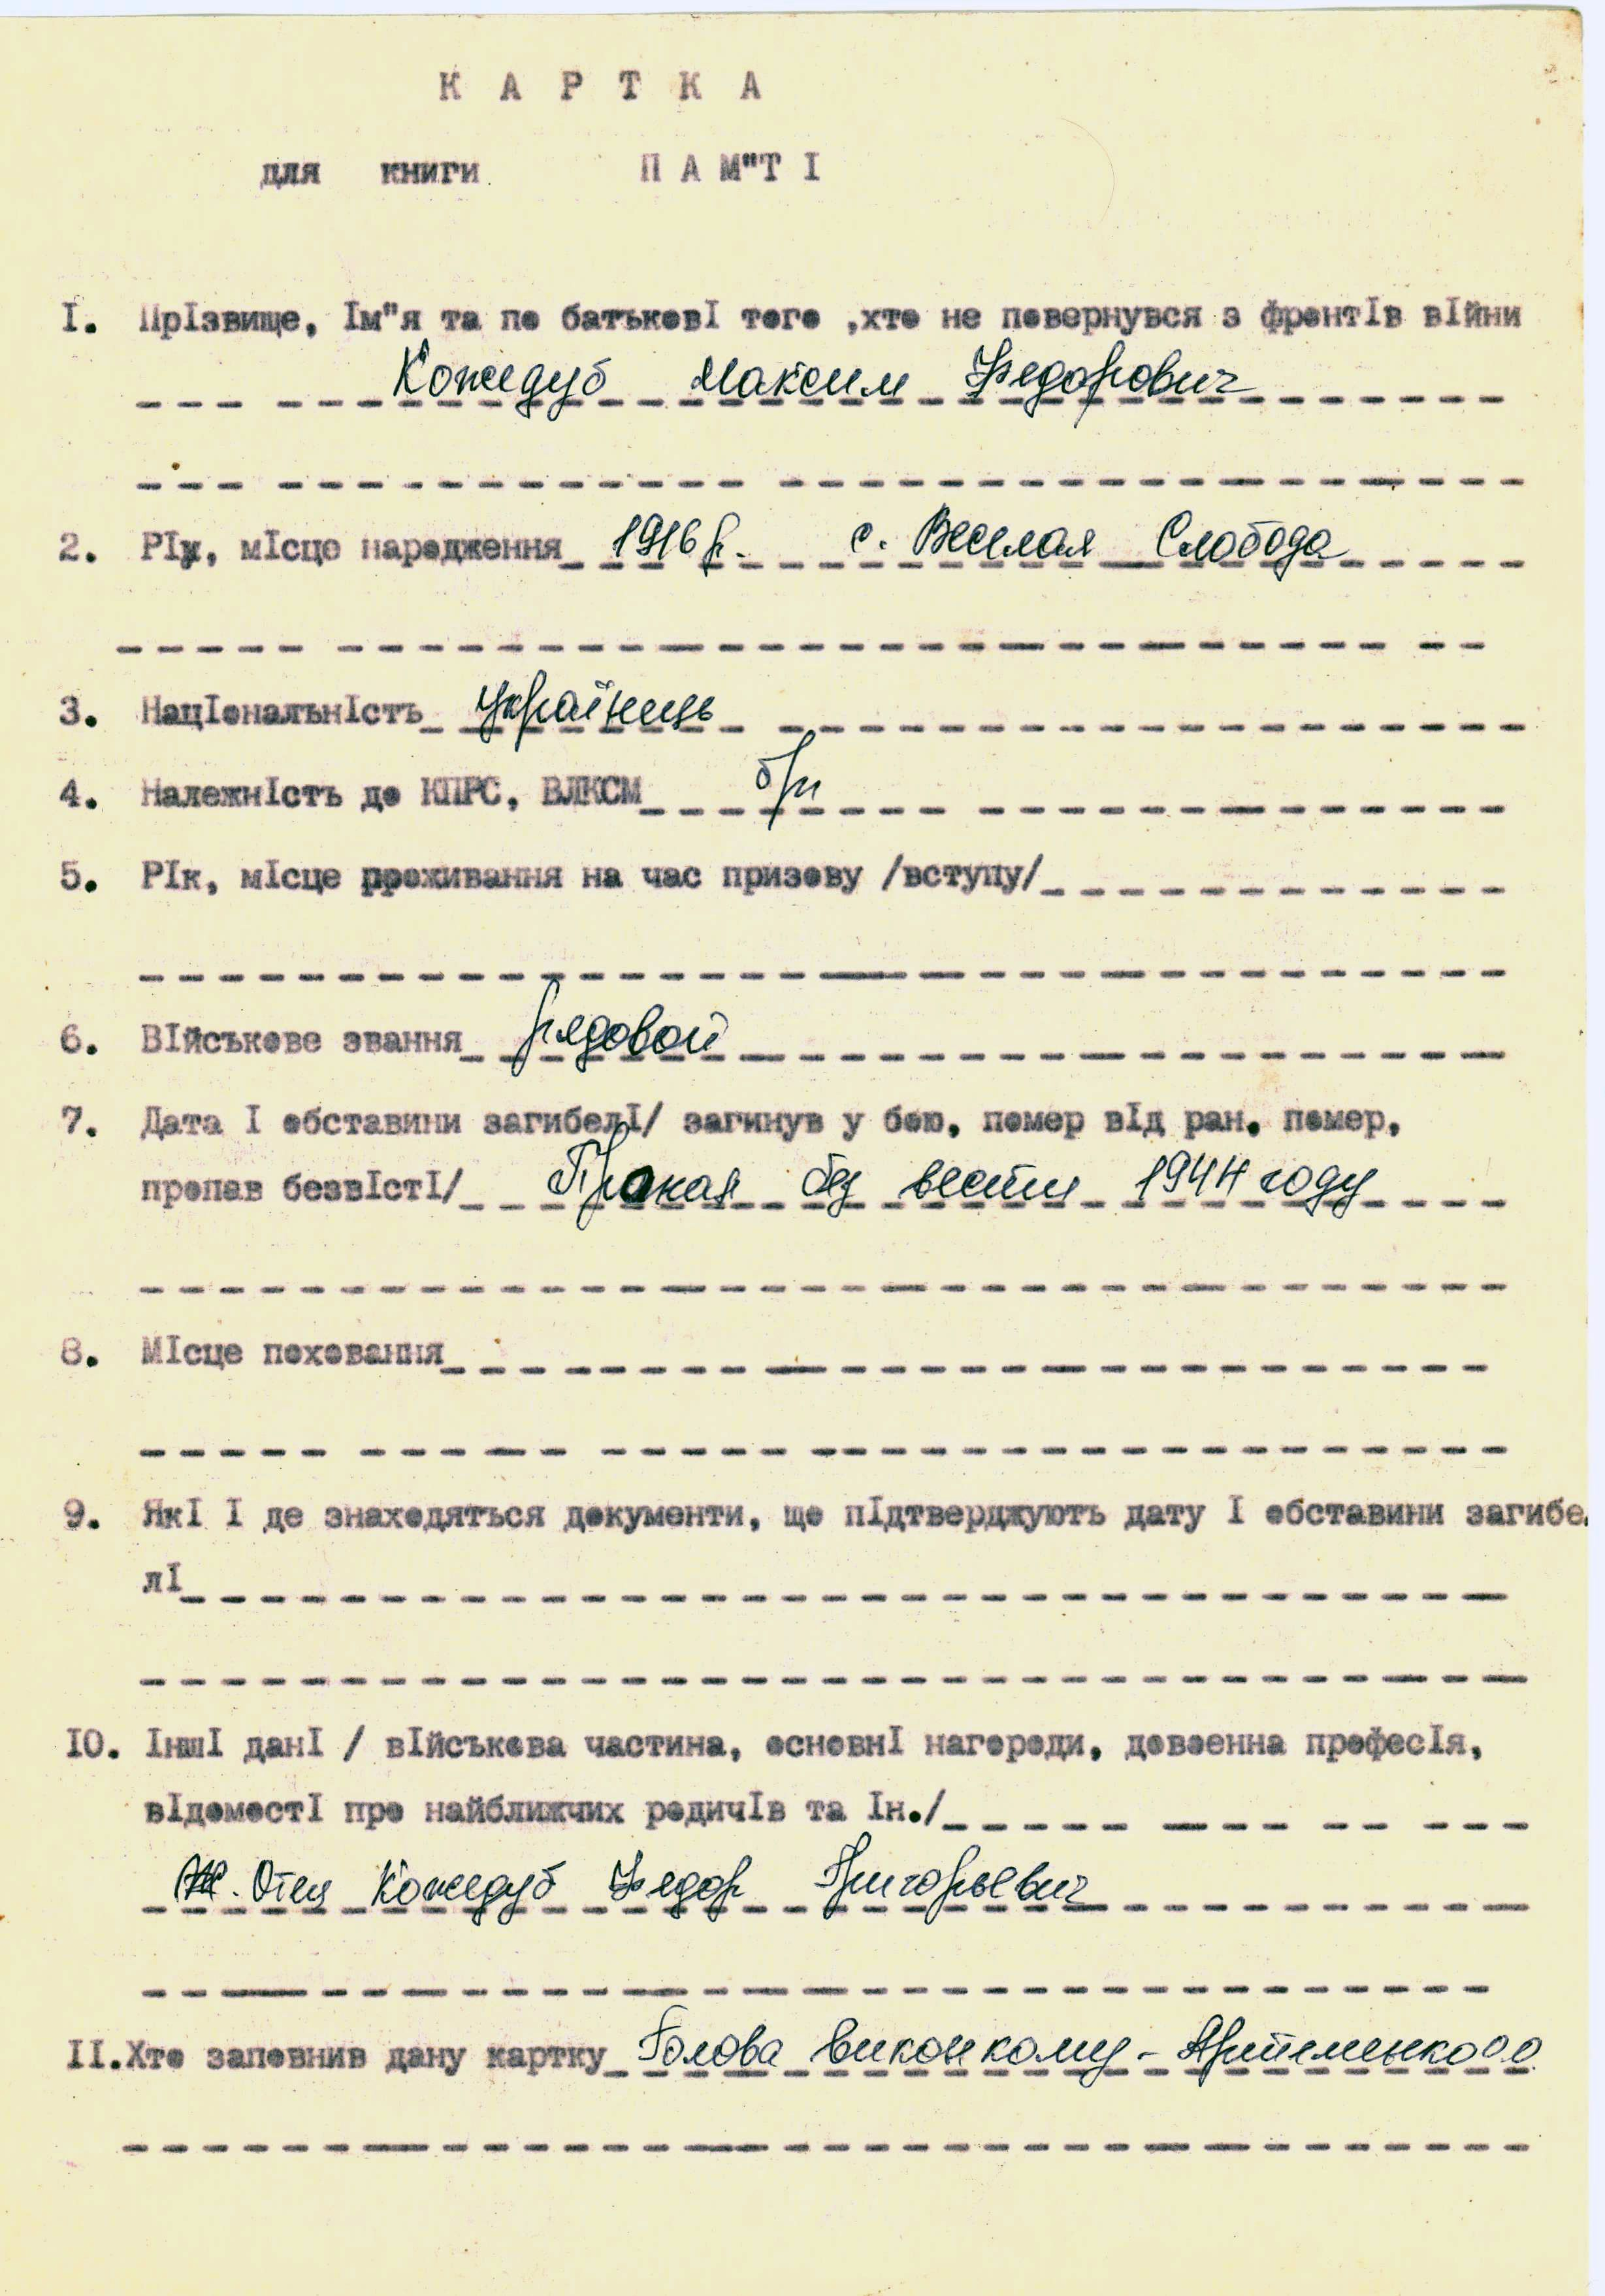 К А Р Т К А
для книги П А М"Т І
І. Прізвище, Ім"я та по батькові того ,хто не повернувся з фронтів війни
Кожедуб Максим Федорович
2. Рік, місце народження 1916 р. с. Веселая Слобода
3. Національність українець
4. Належність до КПРС, ВЛКСМ б/п
5. Рік, місце проживання на час призову /вступу/
6. Військове звання рядовой
7. Дата і обставини загибелі/ загинув у бою, помер від ран, помер,
пропав безвісті/ без вести 1944 году
8. Місце поховання
9. Які і де знаходяться документи, що підтверджують дату і обставини загибе
лі
ІО. Інші дані / військова частина, основні нагороди, довоенна професія,
відомості про найближчих родичів та ін./
Отец Кожедуб Федор Григорьевич
ІІ.Хто заповнив дану картку Голова виконкому - Артеменко О О